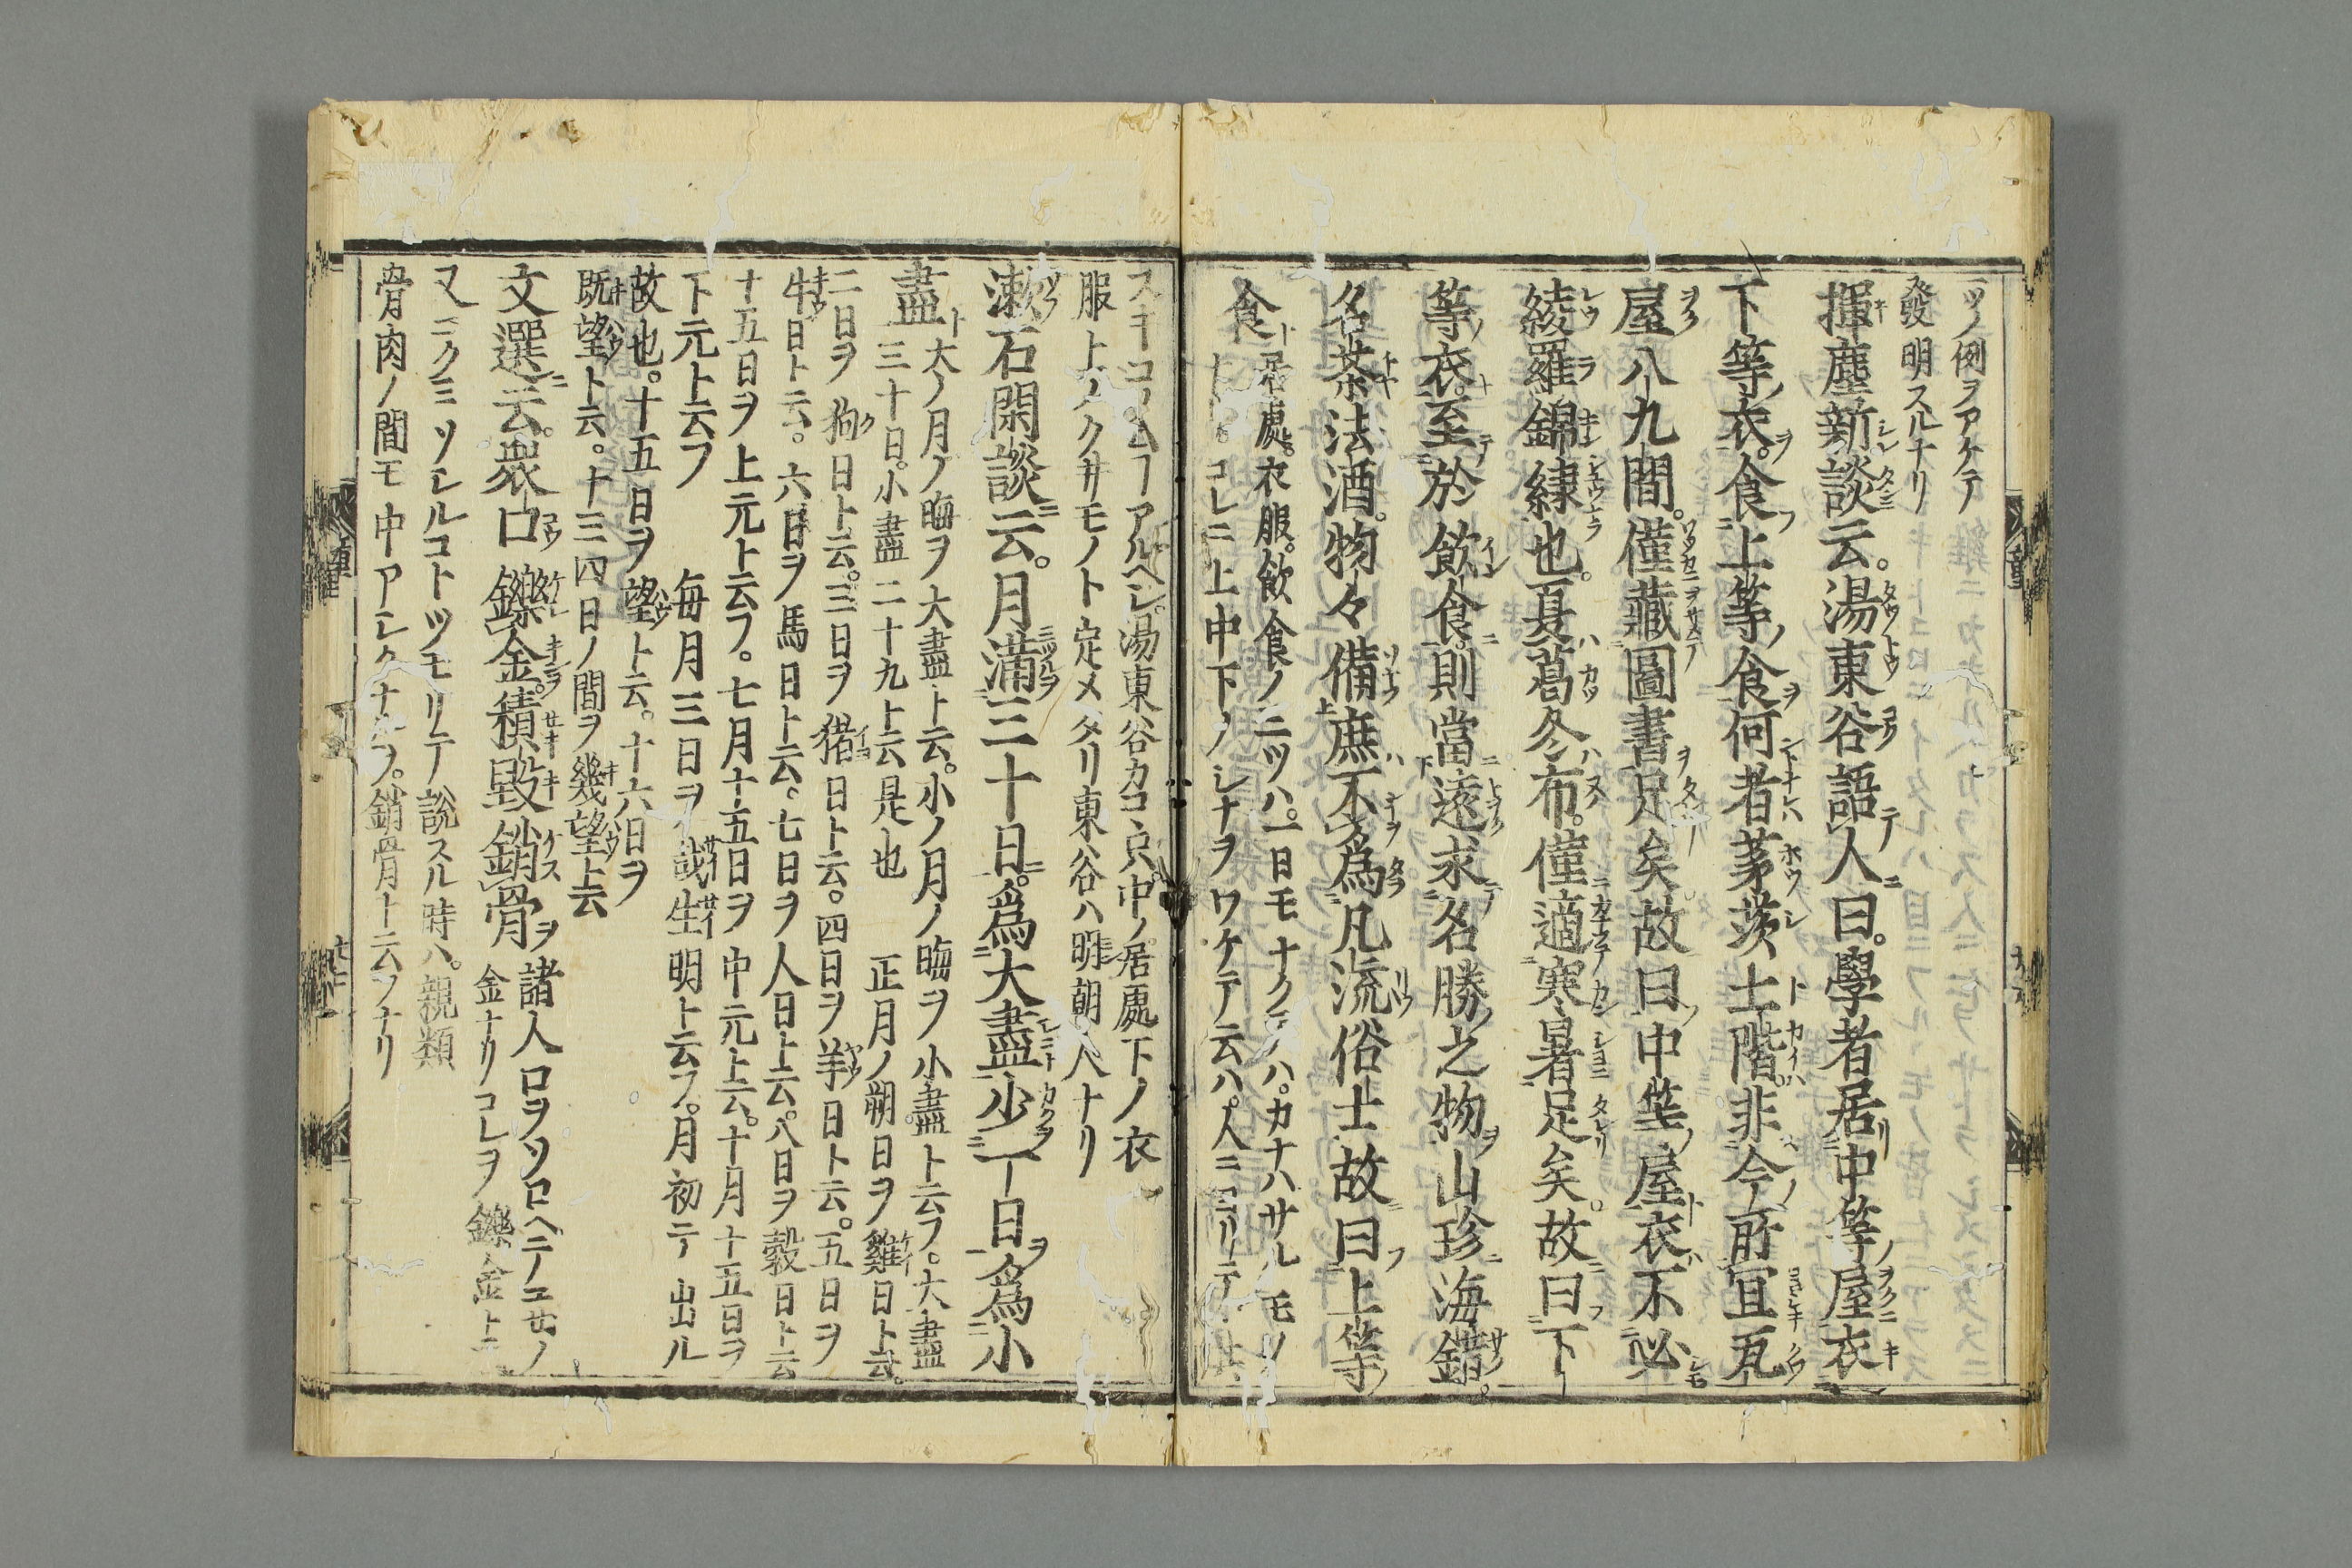 一ツノ例ヲアケテ
發明スルナリ
揮塵新談云。湯東谷語人曰。學者居中等屋衣
下等衣。食上等食何者茅茨土階。非今所宜瓦
屋八九間。僅藏圖書足矣故曰中等屋衣不必
綾羅錦繍也。夏葛冬布。僅適寒暑足矣。故曰下
等衣。至於飲食。則當遠求名勝之物山珍海錯。
名茶法酒。物々備庶不爲凡流俗士故曰上等
食 居處。衣服。飲食ノ三ツハ。一日モナクテハ。カナハサルモノ
コレニ上中下ノシナヲワケテ云ハ。人ニ
アルヘシ。湯東谷カコヽ只中ノ居處下ノ衣
服上ノ クサモノト定メタリ東谷ハ明朝人ナリ
漱石閑談云。月滿三十日。爲大盡少一日爲小
盡 大ノ月ノ晦ヲ大盡ト云。小ノ月ノ晦ヲ小盡ト云フ。大盡
三十日。小盡二十九ト云是也 正月ノ朔日ヲ雞日ト云。
二日ヲ狗日ト云。三日ヲ猪日ト云。四日ヲ羊日ト云。五日ヲ
牛日ト云。六日ヲ馬日ト云。七日ヲ人日ト云。八日ヲ穀日ト云
十五日ヲ上元ト云フ。七月十五日ヲ中元ト云。十月十五日ヲ
下元ト云フ 毎月三日ヲ哉生明ト云フ。月初テ出ル
故也。十五日ヲ望ト云。十六日ヲ
既望ト云。十三四日ノ間ヲ幾望ト云
文選云。衆口鑠金。積毀銷骨 諸人口ヲソロヘテノコサノ
金ナリコレヲ鑠金ト云
又ニクミソシルコトツモリテ說スル時ハ。親類
骨肉ノ間モ中アシクナルヲ。銷骨ト云フナリ